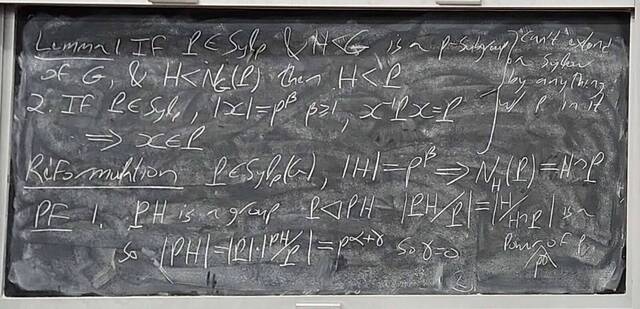 Lemma 1 If P ∈ Sylp & H < G is a p-subgroup
of G, & H < N_G(P) then H < P
2. If P ∈ Sylp, |x| = p^β β≥1, x⁻¹Px = P
⟹ x ∈ P
"can't extend
a Sylow
by anything
w/ p in it
Reformulation P ∈ Sylp(G), |H| = p^β ⟹ N_H(P) = H∩P
PF 1. PH is a group P ◁ PH |PH/P| = |H/H∩P| is a
power of p
p^γ
so |PH| = |P|·|PH/P| = p^{α+γ} so γ=0